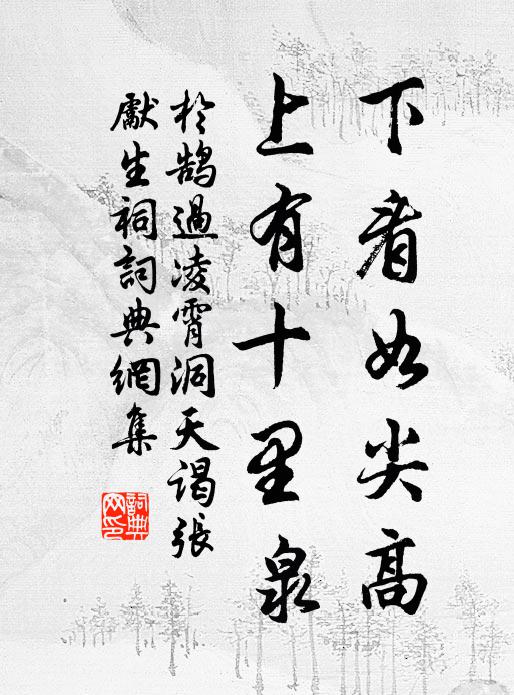 下看如尖高
上有十里泉
於鵠過凌霄洞天謁張
獻生祠詞典網集
詞典
网印